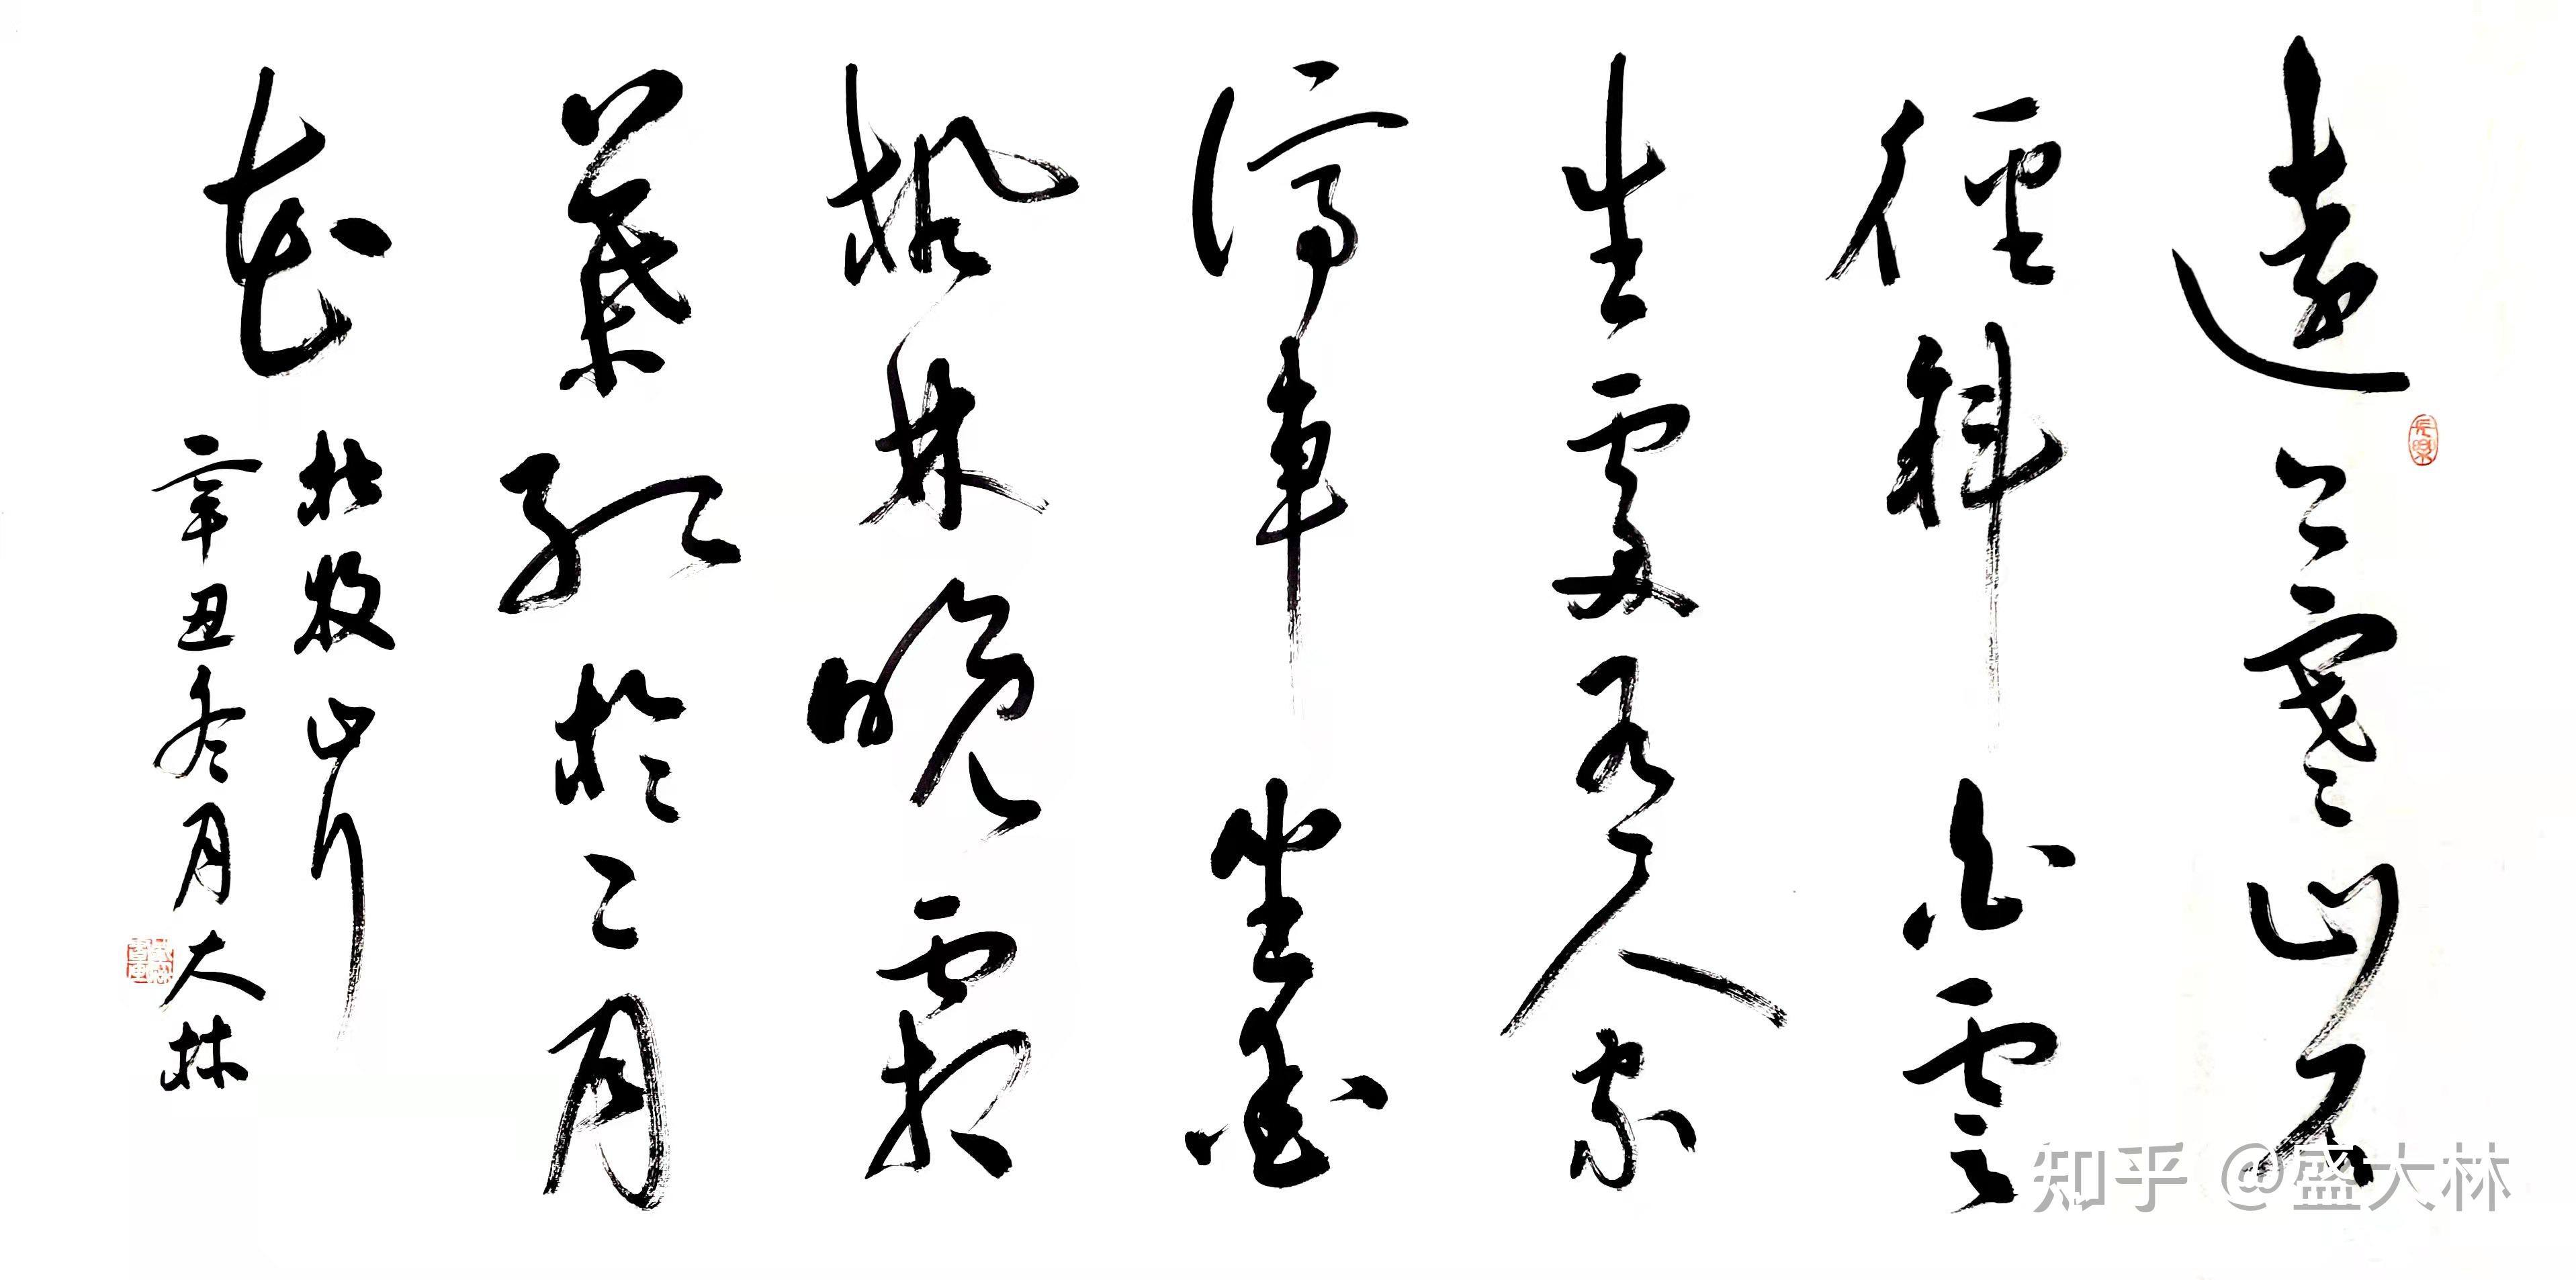 遠上寒山石
徑斜白雲
生處有人家
停車坐愛
楓林晚霜
葉紅於二月
花
杜牧山行
辛丑冬月大林
知乎 @盛大林